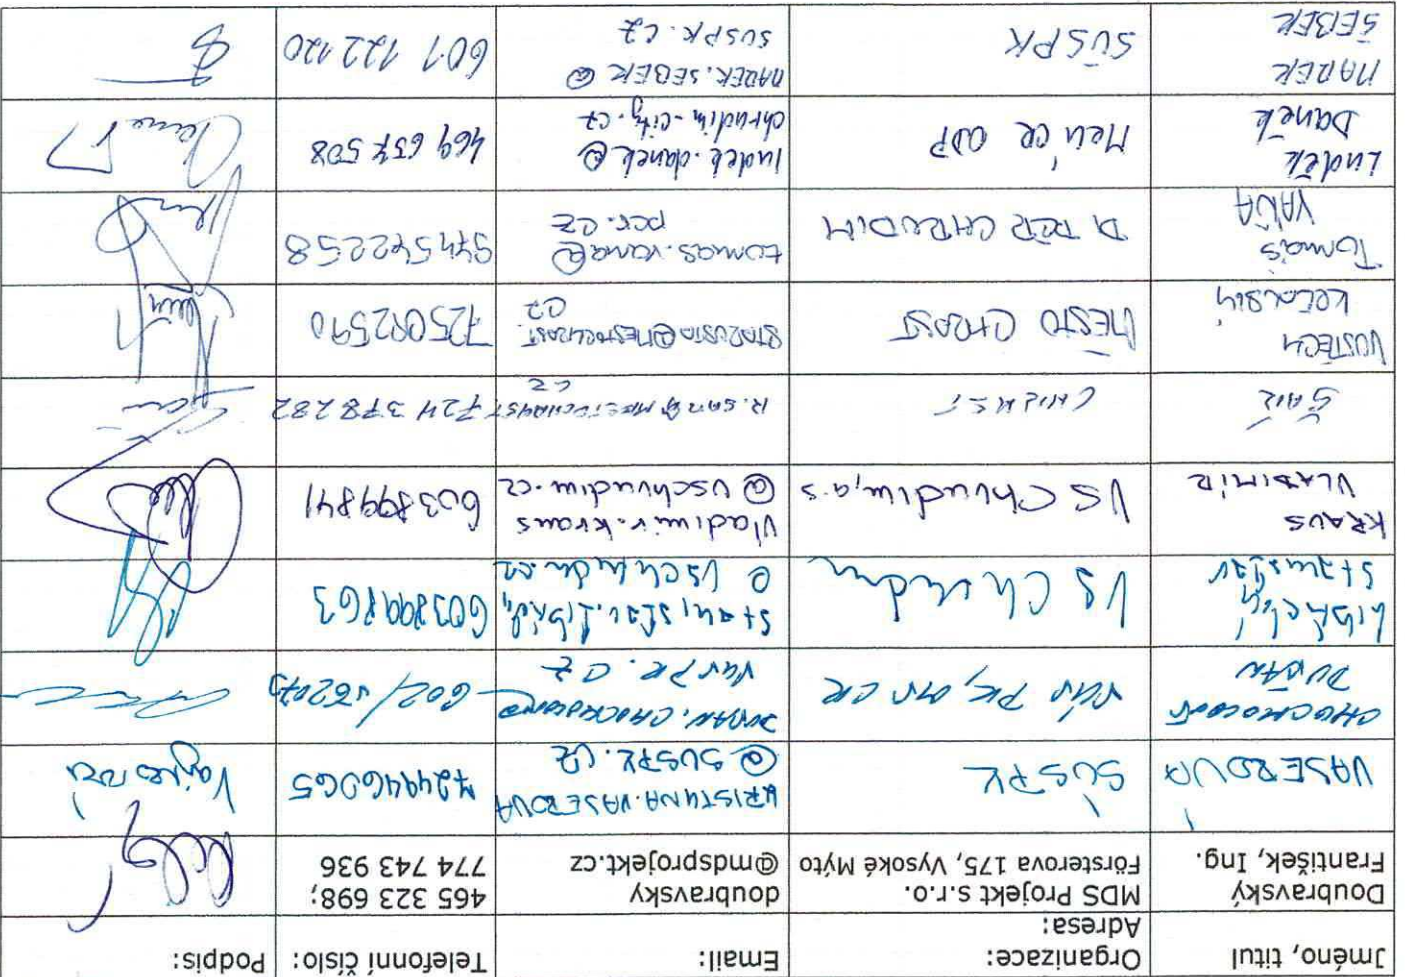 Jméno, titul
Organizace:
Adresa:
Email:
Telefonní číslo:
Podpis:
Doubravský
František, Ing.
MDS Projekt s.r.o.
Försterova 175, Vysoké Mýto
doubravsky
@mdsprojekt.cz
465 323 698;
774 743 936
VASEROVÁ
SÚSPK
KRISTYNA.VASEROVA
@SUSPK.CZ
724460065
DUŠAN
DUSAN.
602/
Stanislav
VS Chrudim
603899863
KRAUS
VLADIMÍR
VS Chrudim, a.s
vladimir.kraus
@vschrudim.cz
603899841
ŠAR
CHRAST
CZ
724 378282
VOJTĚCH
MĚSTO CHRAST
STAROSTA@MESTOCHRAST.
CZ
725092590
Tomáš
VÁŇA
DI PČR CHRUDIM
tomas.vana@
pcr.cz
974572258
Luděk
Daněk
MěÚ CR ODP
ludek.danek@
chrudim-city.cz
469 657 508
MAREK
ŠEBEK
SÚSPK
MAREK.SEBEK@
SUSPK.CZ
601 122 120